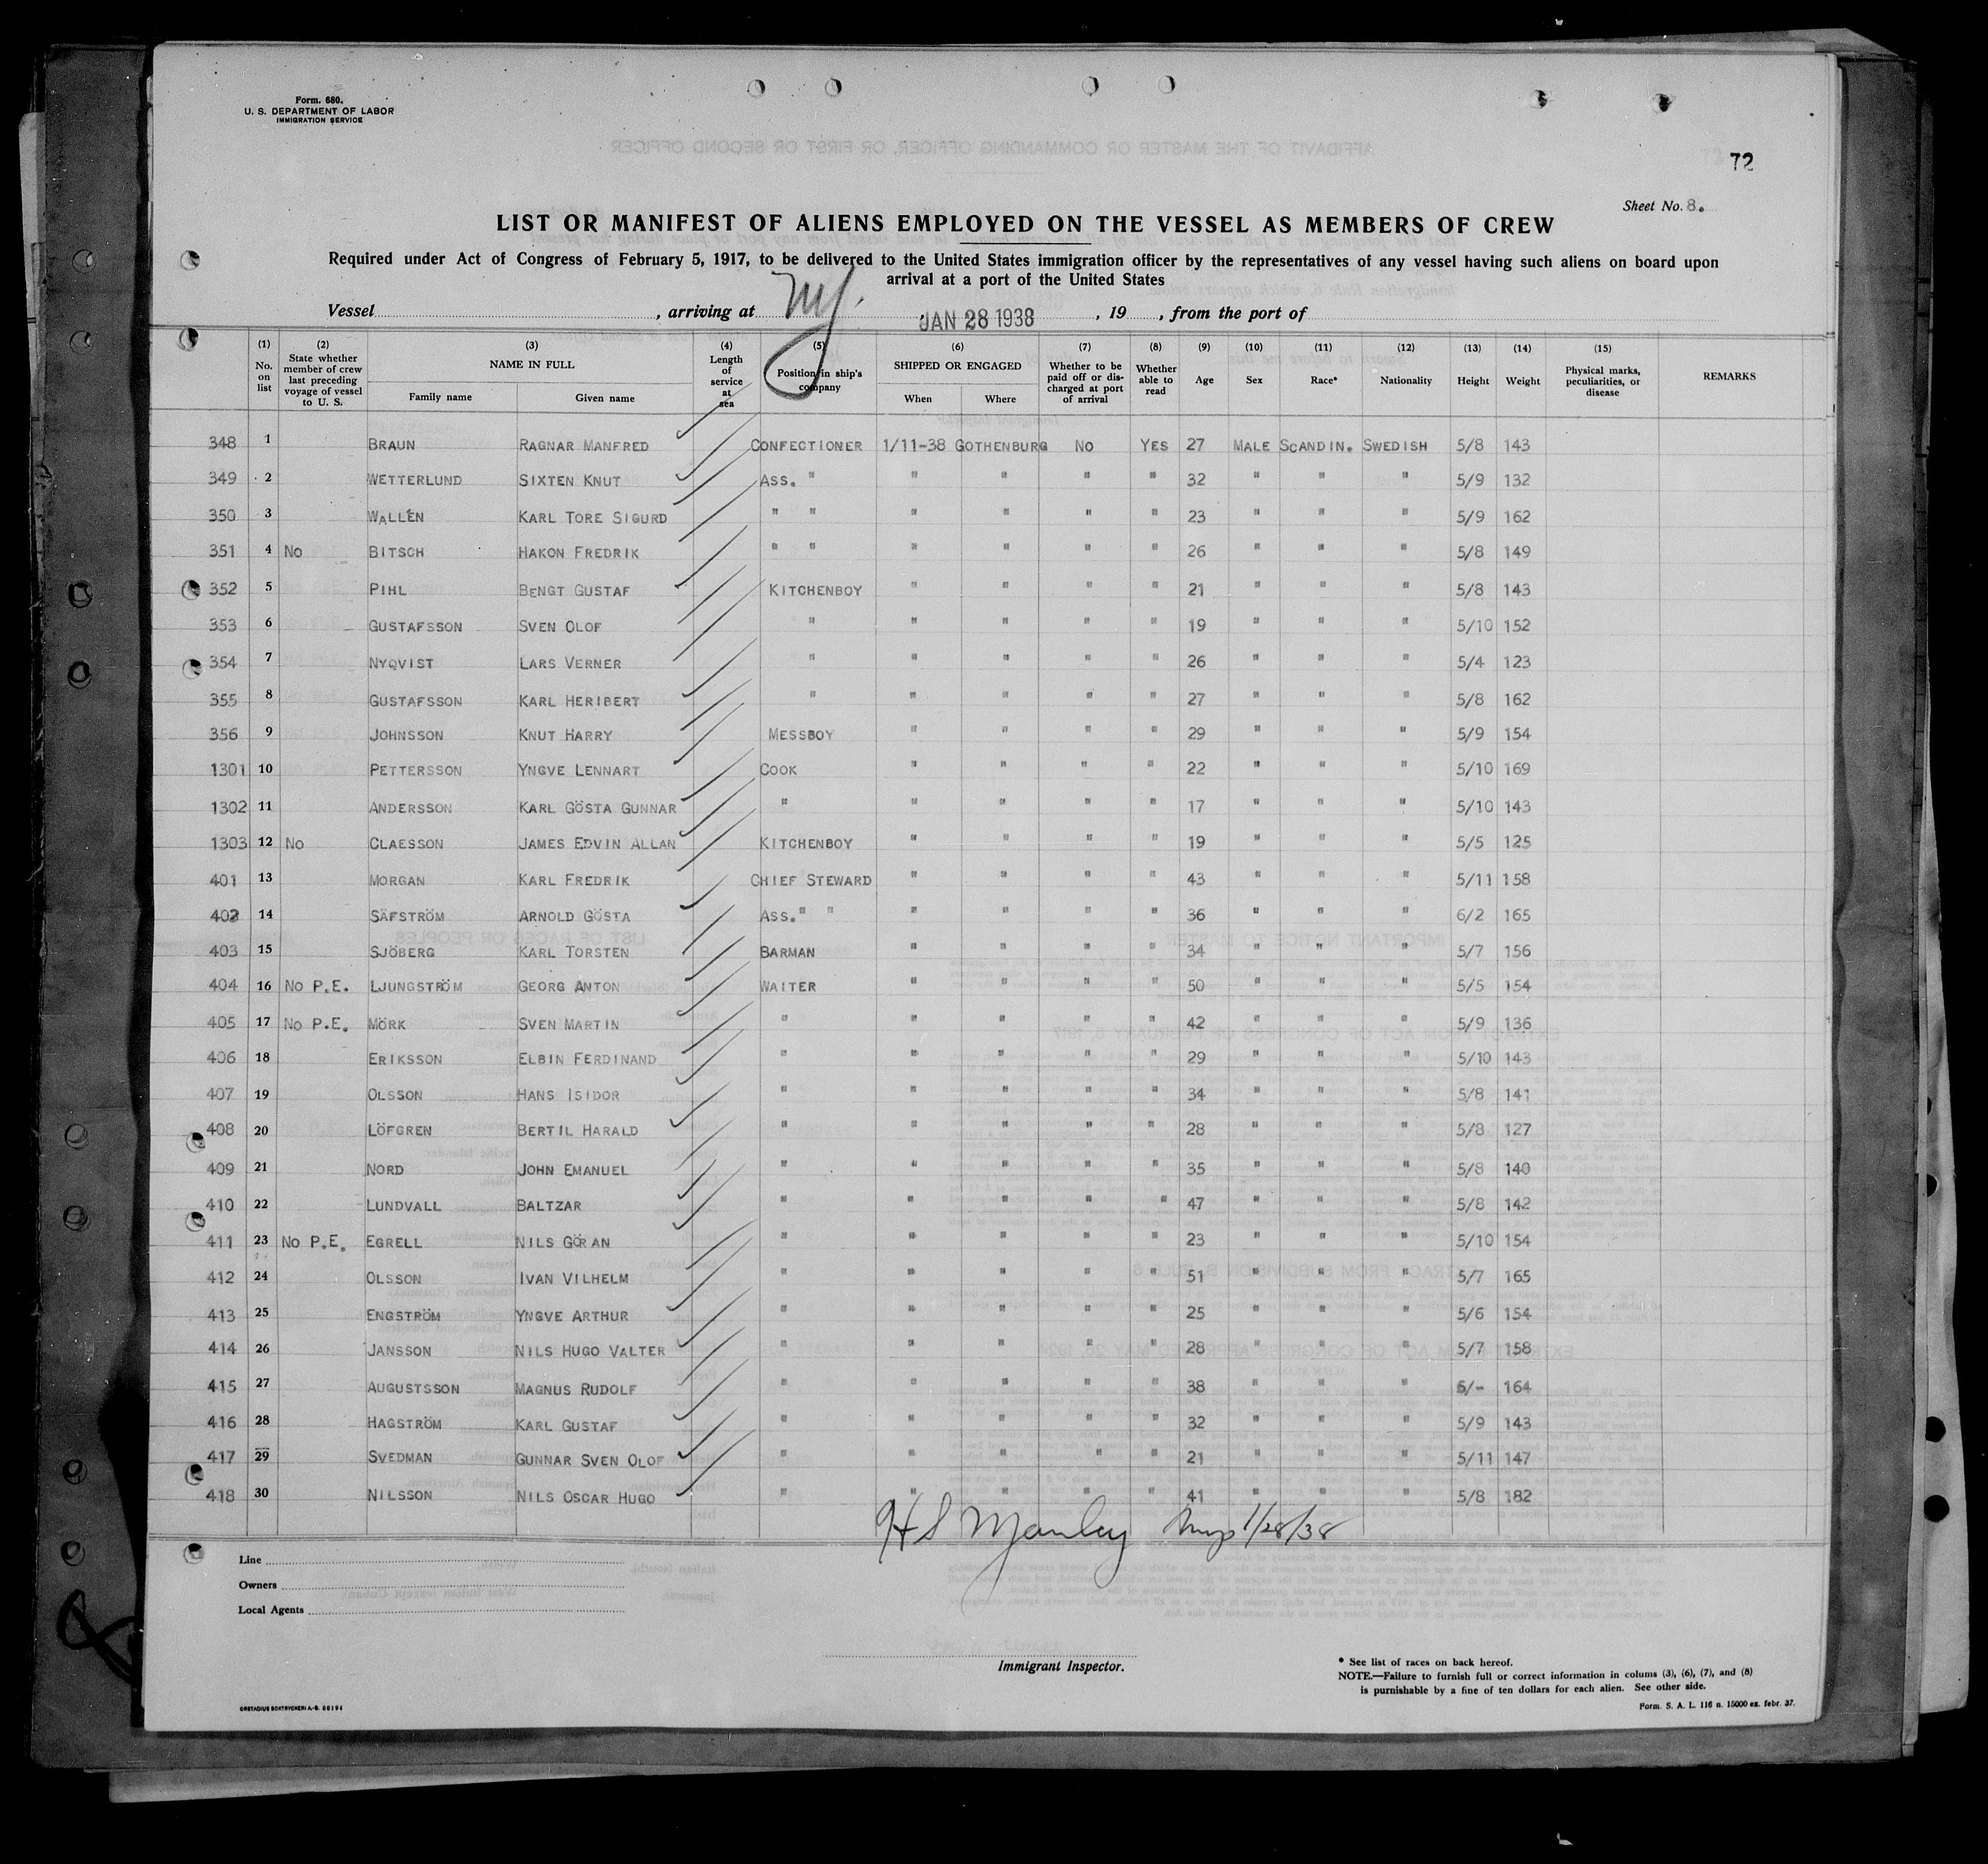 Form. 680.
U. S. DEPARTMENT OF LABOR
IMMIGRATION SERVICE
AFFIDAVIT OF THE MASTER OR COMMANDING OFFICER, OR FIRST OR SECOND OFFICER
72
Sheet No. 8.
LIST OR MANIFEST OF ALIENS EMPLOYED ON THE VESSEL AS MEMBERS OF CREW
Required under Act of Congress of February 5, 1917, to be delivered to the United States immigration officer by the representatives of any vessel having such aliens on board upon
arrival at a port of the United States
Vessel , arriving at NY. , JAN 28 1938 , 19 , from the port of
(1) No. on list (2) State whether member of crew last preceding voyage of vessel to U. S. (3) NAME IN FULL Family name Given name (4) Length of service at sea (5) Position in ship's company (6) SHIPPED OR ENGAGED When Where (7) Whether to be paid off or discharged at port of arrival (8) Whether able to read (9) Age (10) Sex (11) Race* (12) Nationality (13) Height (14) Weight (15) Physical marks, peculiarities, or disease REMARKS
348 1 BRAUN RAGNAR MANFRED CONFECTIONER 1/11-38 GOTHENBURG NO YES 27 MALE SCANDIN. SWEDISH 5/8 143
349 2 WETTERLUND SIXTEN KNUT ASS. " " " " " 32 " " " 5/9 132
350 3 WALLÉN KARL TORE SIGURD " " " " " " 23 " " " 5/9 162
351 4 NO BITSCH HAKON FREDRIK " " " " " " 26 " " " 5/8 149
352 5 PIHL BENGT GUSTAF KITCHENBOY " " " " 21 " " " 5/8 143
353 6 GUSTAFSSON SVEN OLOF " " " " " 19 " " " 5/10 152
354 7 NYQVIST LARS VERNER " " " " " 26 " " " 5/4 123
355 8 GUSTAFSSON KARL HERIBERT " " " " " 27 " " " 5/8 162
356 9 JOHNSSON KNUT HARRY MESSBOY " " " " 29 " " " 5/9 154
1301 10 PETTERSSON YNGVE LENNART COOK " " " " 22 " " " 5/10 169
1302 11 ANDERSSON KARL GÖSTA GUNNAR " " " " " 17 " " " 5/10 143
1303 12 NO CLAESSON JAMES EDVIN ALLAN KITCHENBOY " " " " 19 " " " 5/5 125
401 13 MORGAN KARL FREDRIK CHIEF STEWARD " " " " 43 " " " 5/11 158
402 14 SÄFSTRÖM ARNOLD GÖSTA ASS. " " " " " " 36 " " " 6/2 165
403 15 SJÖBERG KARL TORSTEN BARMAN " " " " 34 " " " 5/7 156
404 16 NO P.E. LJUNGSTRÖM GEORG ANTON WAITER " " " " 50 " " " 5/5 154
405 17 NO P.E. MÖRK SVEN MARTIN " " " " " 42 " " " 5/9 136
406 18 ERIKSSON ELBIN FERDINAND " " " " " 29 " " " 5/10 143
407 19 OLSSON HANS ISIDOR " " " " " 34 " " " 5/8 141
408 20 LÖFGREN BERTIL HARALD " " " " " 28 " " " 5/8 127
409 21 NORD JOHN EMANUEL " " " " " 35 " " " 5/8 140
410 22 LUNDVALL BALTZAR " " " " " 47 " " " 5/8 142
411 23 NO P.E. EGRELL NILS GÖRAN " " " " " 23 " " " 5/10 154
412 24 OLSSON IVAN VILHELM " " " " " 51 " " " 5/7 165
413 25 ENGSTRÖM YNGVE ARTHUR " " " " " 25 " " " 5/6 154
414 26 JANSSON NILS HUGO VALTER " " " " " 28 " " " 5/7 158
415 27 AUGUSTSSON MAGNUS RUDOLF " " " " " 38 " " " 6/- 164
416 28 HAGSTRÖM KARL GUSTAF " " " " " 32 " " " 5/9 143
417 29 SVEDMAN GUNNAR SVEN OLOF " " " " " 21 " " " 5/11 147
418 30 NILSSON NILS OSCAR HUGO " " " " " 41 " " " 5/8 182
H S Manley 1/28/38
Line
Owners
Local Agents
Immigrant Inspector.
* See list of races on back hereof.
NOTE.—Failure to furnish full or correct information in colums (3), (6), (7), and (8)
is punishable by a fine of ten dollars for each alien. See other side.
Form. S. A. L. 116 n. 15000 ex. febr. 37.